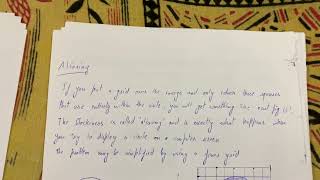 Aliasing
If you put a grid over the image and only colour those squares
that are entirely within the circle, you will get something like next fig
The blockiness is called 'aliasing' and is exactly what happens when
you try to display a circle on a computer screen
the problem may be simplified by using a finer grid